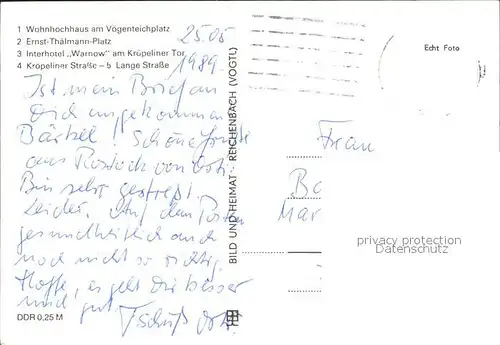 1 Wohnhochhaus am Vögenteichplatz
2 Ernst-Thälmann-Platz
3 Interhotel „Warnow" am Kröpeliner Tor
4 Kröpeliner Straße – 5 Lange Straße
25.05
1989.
Ist mein Brief an
Dich angekommen
Bärbel! Schöne Grüße
aus Rostock von
Bin sehr gestreßt.
Leider. Auf dem Posten
gesundheitlich auch
noch nicht so richtig.
Hoffe, es geht Dir besser
und gut. Tschüß
DDR 0,25 M
BILD UND HEIMAT · REICHENBACH (VOGTL)
Echt Foto
Frau
Ba
Mar
privacy protection
Datenschutz